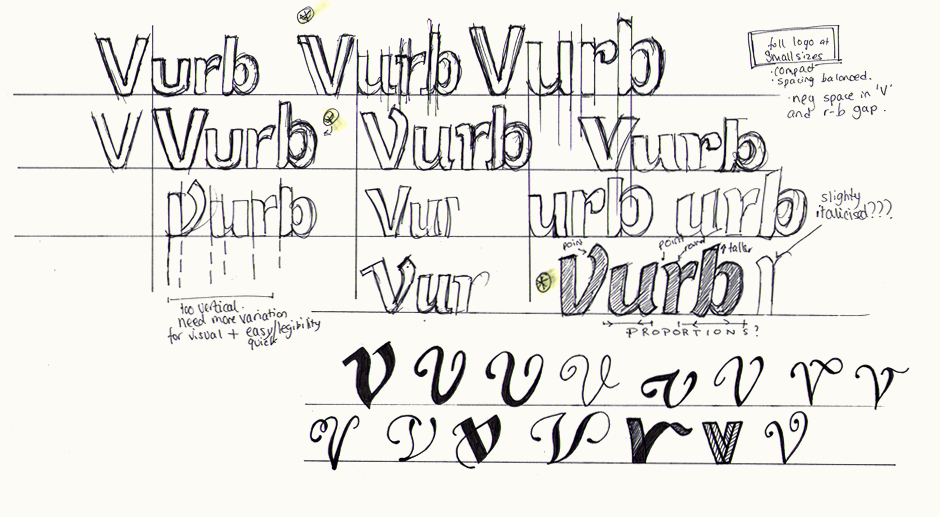 Vurb Vurb Vurb
full logo at
small sizes
· compact
· spacing balanced.
· neg space in 'V'
and r-b gap.
V Vurb Vurb Vurb
Vurb Vur urb urb
slightly
italicised???
Vur Vurb r
point point round ↑ taller
too vertical.
need more variation
for visual + easy/legibility
quick
PROPORTIONS?
V V V V V V V V
V V V V V V V